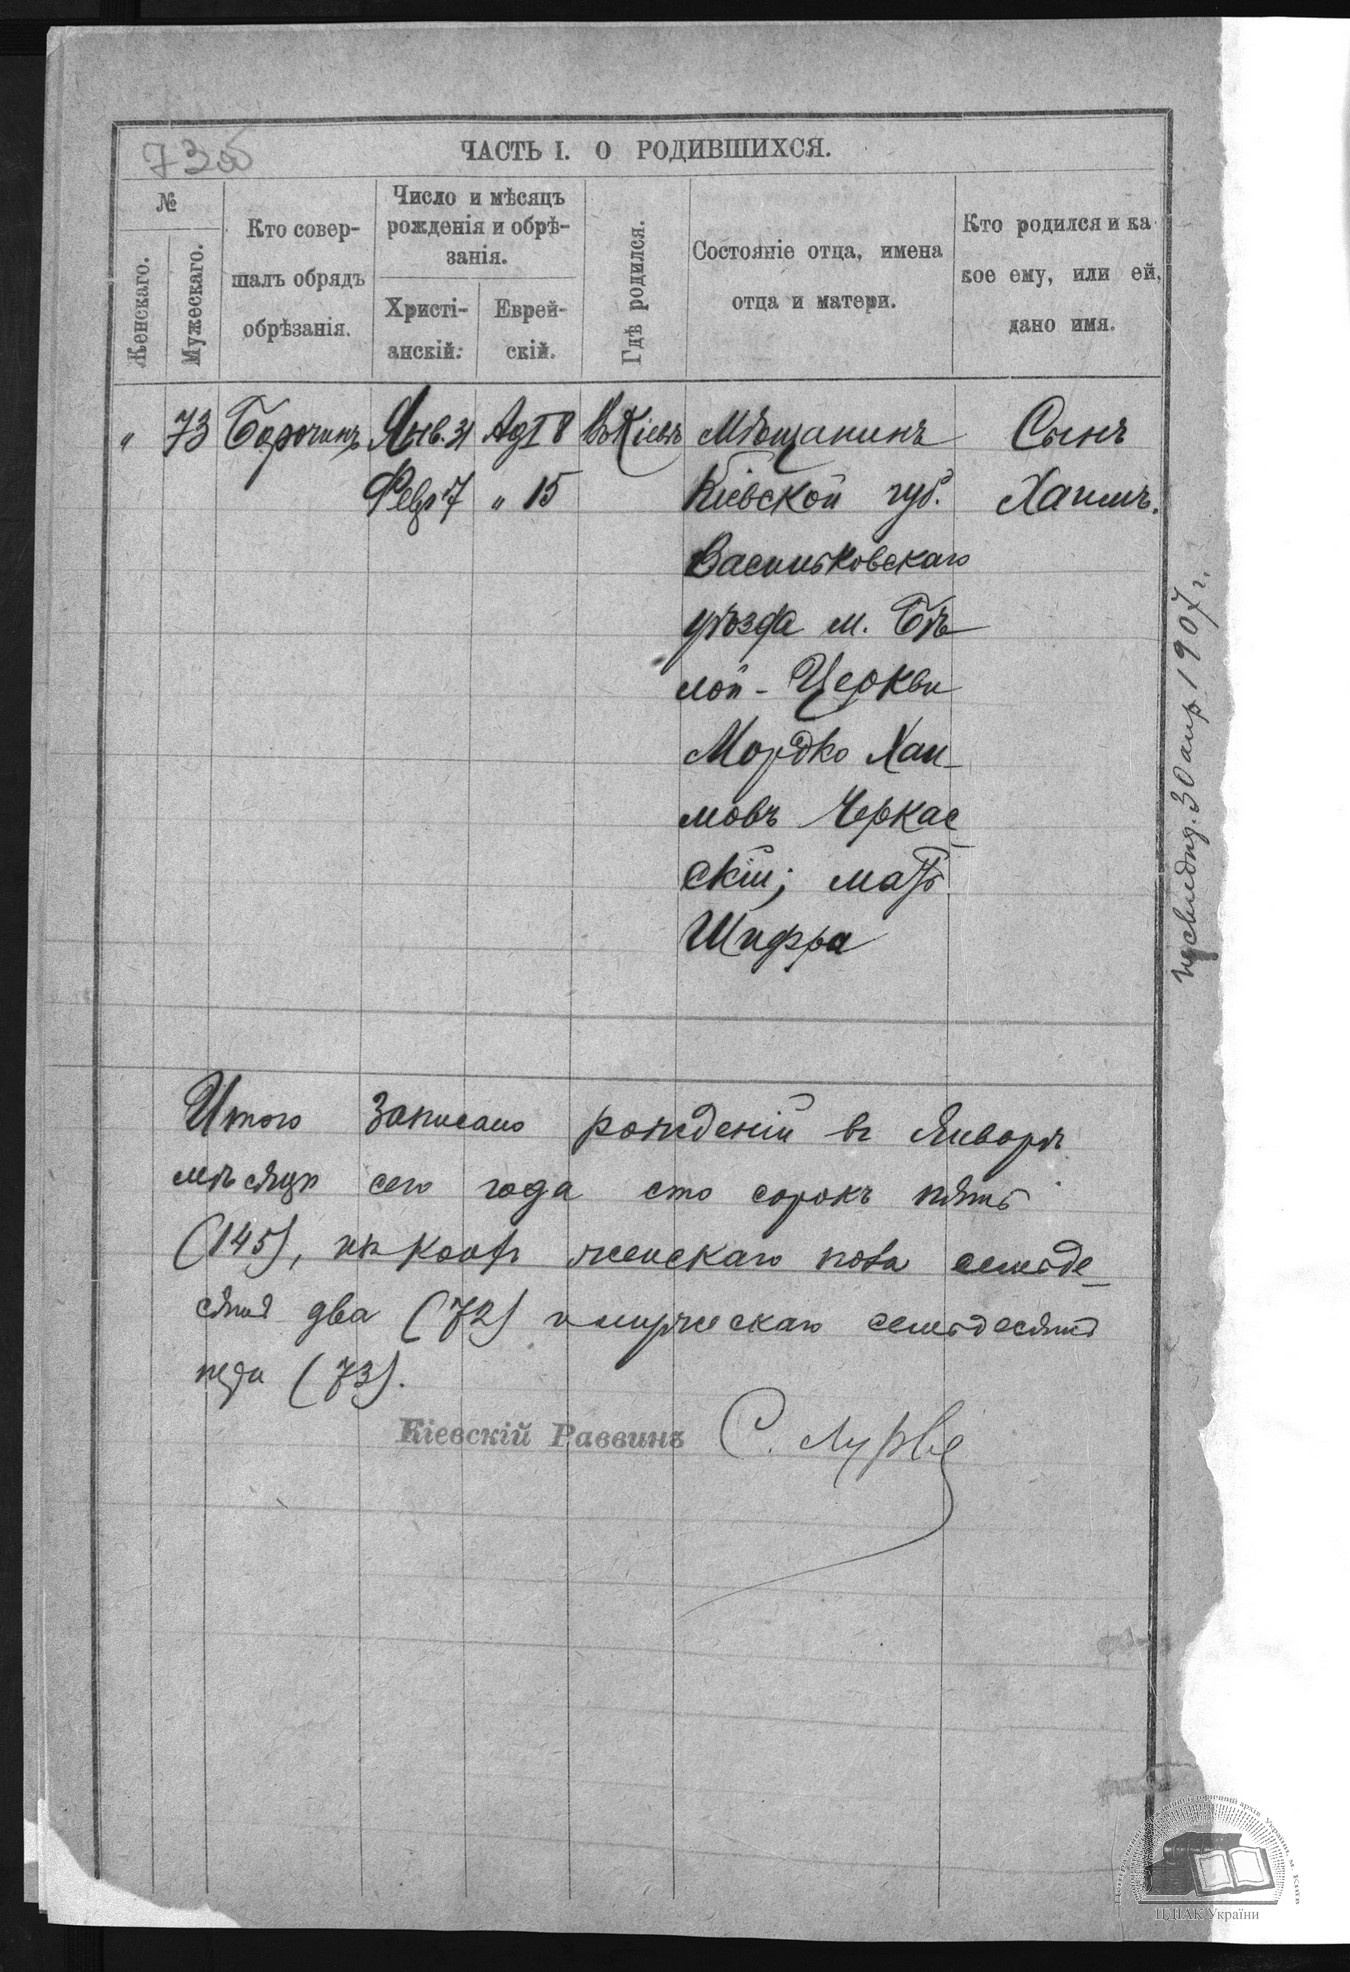 73 об
ЧАСТЬ I. О РОДИВШИХСЯ.
№
Женскаго.
Мужескаго.
Кто совер-
шалъ обрядъ
обрѣзанія.
Число и мѣсяцъ
рожденія и обрѣ-
занія.
Христі-
анскій.
Еврей-
скій.
Гдѣ родился.
Состояніе отца, имена
отца и матери.
Кто родился и ка
кое ему, или ей,
дано имя.
" 73 Янв. 31 Ад I 8 Въ Кіевѣ Мѣщанинъ Сынъ
Февр 7 " 15 Кіевской губ. Хаимъ.
Васильковскаго
уѣзда м. Бѣ
лой - Церкви
Мордко Хаи-
мовъ Черкас-
скій; мать
Шифра
свидѣт. 30 апр 1907 г.
Итого записано рожденій въ Январѣ
мѣсяцѣ сего года сто сорокъ пять
(145), изъ коихъ женскаго пола семьде-
сятъ два (72) и мужескаго семьдесятъ
три (73).
Кіевскій Раввинъ С. Лурье
ЦДІАК України